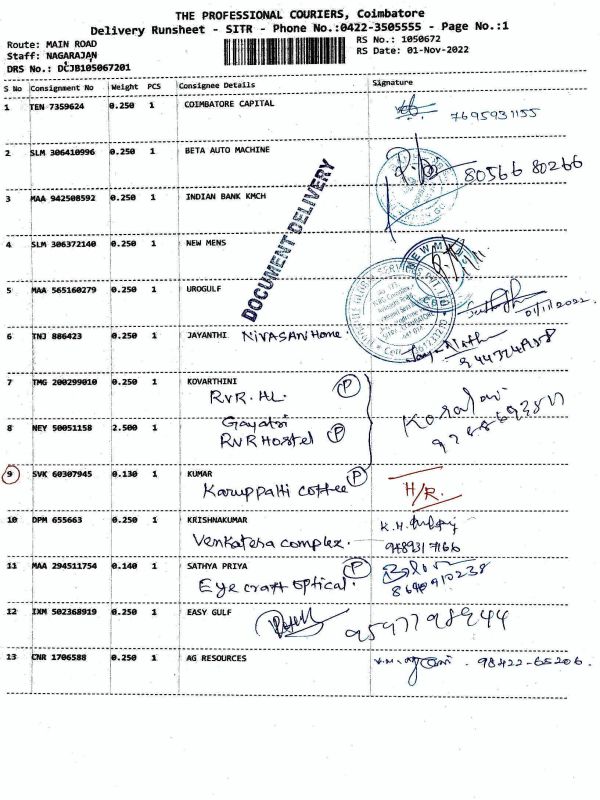 THE PROFESSIONAL COURIERS, Coimbatore
Delivery Runsheet - SITR - Phone No.:0422-3505555 - Page No.:1
Route: MAIN ROAD
RS No.: 1050672
Staff: NAGARAJAN
RS Date: 01-Nov-2022
DRS No.: DCJB105067201
S No Consignment No Weight PCS Consignee Details Signature
1 TEN 7359624 0.250 1 COIMBATORE CAPITAL
7695931155
2 SLM 306410996 0.250 1 BETA AUTO MACHINE
80566 80266
3 MAA 942508592 0.250 1 INDIAN BANK KMCH
DOCUMENT DELIVERY
4 SLM 306372140 0.250 1 NEW MENS
5 MAA 565160279 0.250 1 UROGULF
01/11/2022
6 TNJ 886423 0.250 1 JAYANTHI NIVASAN Home.
7 TMG 200299010 0.250 1 KOVARTHINI
RVR. HL P
8 NEY 50051158 2.500 1 Gayatri
RVR Hostel P
9 SVK 60307945 0.130 1 KUMAR P
Karuppatti coffee H/R.
10 DPM 655663 0.250 1 KRISHNAKUMAR
Venkatesa complex.
11 MAA 294511754 0.140 1 SATHYA PRIYA P
Eye craft optical. 8640910238
12 IXM 502368919 0.250 1 EASY GULF
9597798944
13 CNR 1706588 0.250 1 AG RESOURCES 98422-65206.